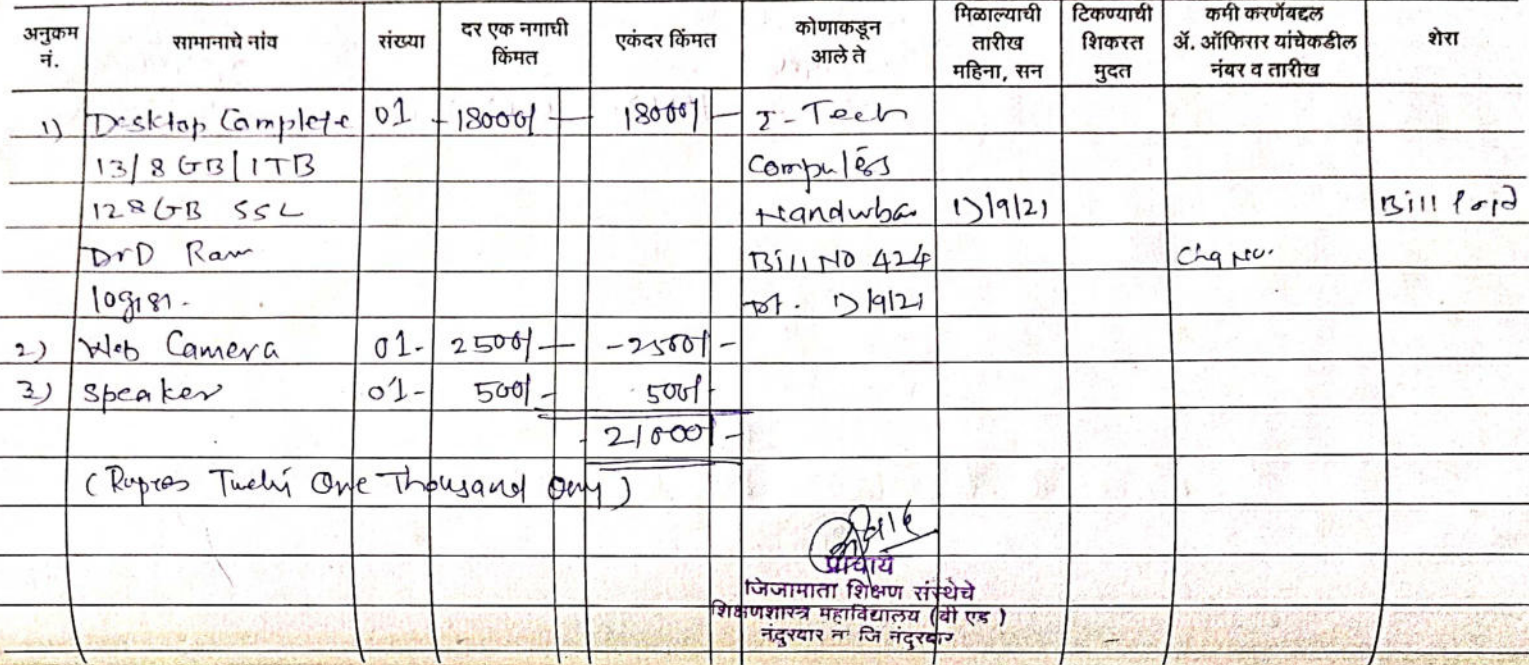 अनुक्रम नं. सामानाचे नांव संख्या दर एक नगाची किंमत एकंदर किंमत कोणाकडून आले ते मिळाल्याची तारीख महिना, सन टिकण्याची शिकस्त मुदत कमी करणेंबद्दल ॲ. ऑफिसर यांचेकडील नंबर व तारीख शेरा
1) Desktop Complete 01 - 18000/- 18000/- I-Tech
13/8 GB/1TB
128GB SSL Bill Paid
Ram Bill NO 424
2) Web Camera 01- 2500/- - 2500/-
3) Speaker 01- 500/- 500/-
21000/-
One Thousand Only)
प्राचार्य
जिजामाता शिक्षण संस्थेचे
शिक्षणशास्त्र महाविद्यालय (बी एड)
नंदुरबार ता जि नंदुरबार